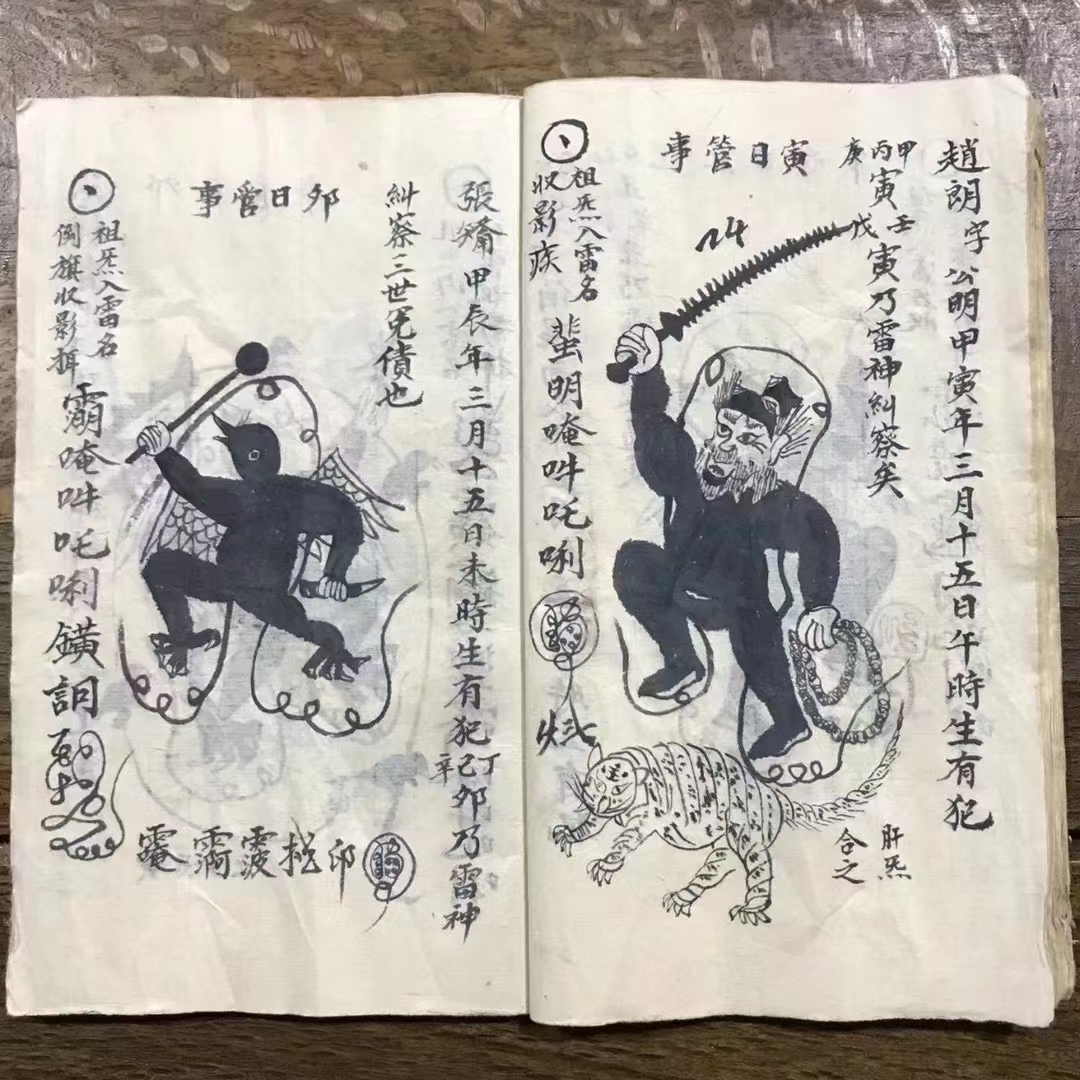 趙朗字公明甲寅年三月十五日午時生有犯
甲丙庚
寅
壬戊
寅乃雷神糾察矣
寅日管事
祖炁入雷名
收影疾
明唵吽吒唎
肝炁
合之
張
甲辰年三月十五日未時生有犯
丁己辛
卯乃雷神
糾察三世冤債也
卯日管事
祖炁入雷名
倒旗收影
唵吽吒唎鐄詷
卯